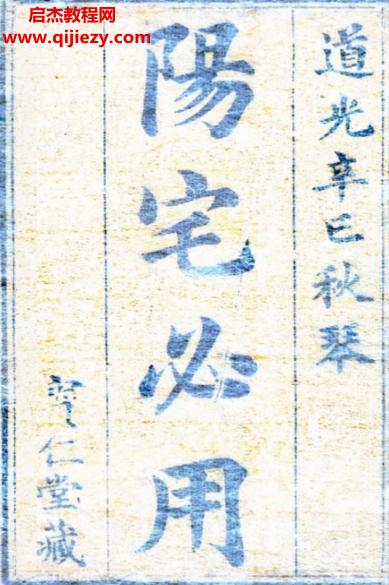 启杰教程网
www.qijiezy.com
道光辛巳秋琴
陽宅必用
寶仁堂藏